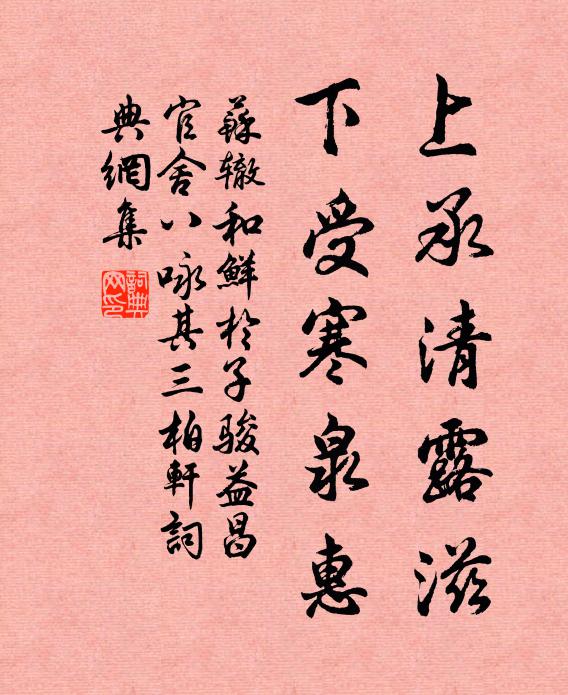 上承清露滋
下受寒泉惠
蘇辙和鮮於子駿益昌
官舍八咏其三柏軒詞
典網集
詞典
网印